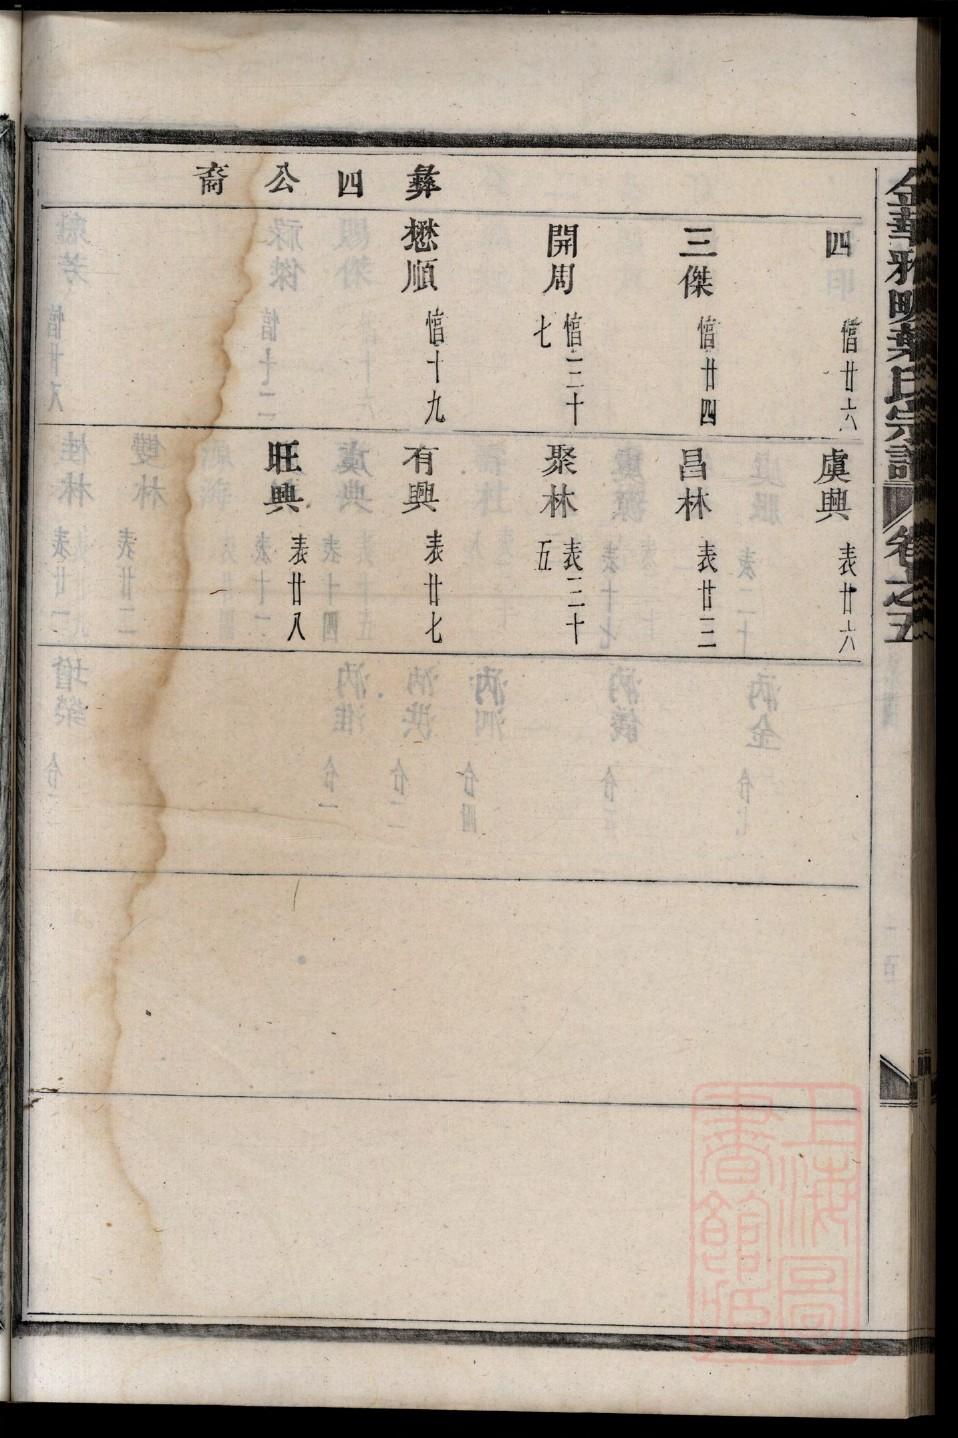 金華雅畈葉氏宗譜 卷之五
彝四公裔
四 愭廿六
三傑 愭廿四
開周 愭三十七
懋順 愭十九
虞興 表廿六
昌林 表廿三
聚林 表三十五
有興 表廿七
旺興 表廿八
上海圖書館藏